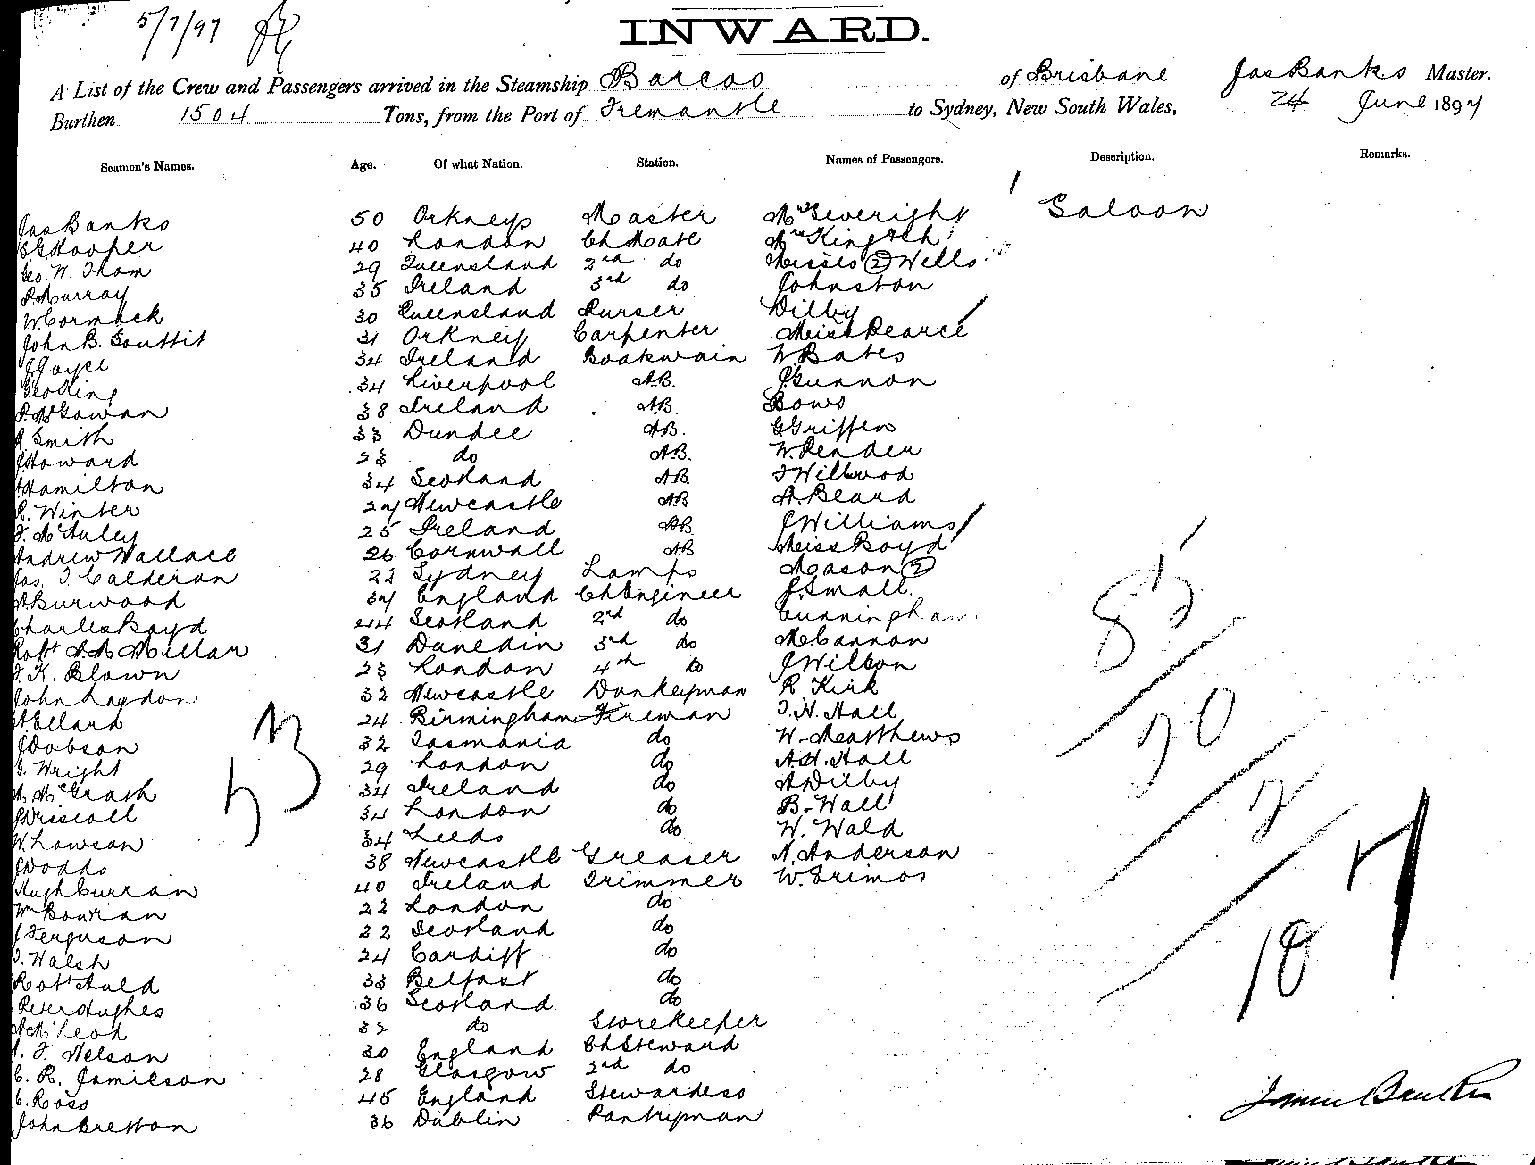 5/7/97
INWARD.
A List of the Crew and Passengers arrived in the Steamship Barcoo of Brisbane Jas Banks Master.
Burthen 1504 Tons, from the Port of Fremantle to Sydney, New South Wales, 24 June 1897
Seamen's Names. Age. Of what Nation. Station. Names of Passengers. Description. Remarks.
Jas Banks 50 Orkneys Master Mrs Siveright Saloon
Hooper 40 London Ch Mate Mrs King & ch
Geo. W. Thom 29 Queensland 2nd do Misses (2) Wells
P. Murray 35 Ireland 3rd do Johnston
W Cormack 30 Queensland Purser Dilby
John B. Souttit 31 Orkney Carpenter Miss Pearce
J Joyce 34 Ireland Boatswain W Bates
Geo King 34 Liverpool AB. J Gunnon
McGowan 38 Ireland AB. Bows
Smith 33 Dundee AB. G Griffen
J Howard 23 do AB. W. Render
Hamilton 34 Scotland AB
R. Winter 27 Newcastle AB A. Beard
McAuley 25 Ireland AB J Williams
Andrew Wallace 26 Cornwall AB Miss Boyd
Jas. T Calderon 22 Sydney Lamps Mason (2)
Burwood 37 England Ch Engineer J. Small.
Charles Boyd 44 Scotland 2nd do Cunningham
Robt Millar 31 Dunedin 3rd do McCannon
K. Blown 23 London 4th do J Wilson
John Lagdon 32 Newcastle Donkeyman R Kirk
Ellard 24 Birmingham Fireman T. H. Hall
J Dobson 32 Tasmania do W. Matthews
G. Wright 29 London do A. H. Hall
McGrath 34 Ireland do A Dilby
J Driscoll 34 London do B. Wall
W. Lowson 34 Leeds do W. Wald
J Dodds 38 Newcastle Greaser N. Anderson
Hugh Curran 40 Ireland Trimmer W. Grimos
Wm Bowran 22 London do
J Ferguson 22 Scotland do
T. Walsh 24 Cardiff do
Robt Auld 33 Belfast do
Peter Hughes 36 Scotland do
McLeod 32 do Storekeeper
T. Nelson 30 England Ch Steward
C. R. Jamieson 28 Glasgow 2nd do
C. Ross 45 England Stewardess
John Breston 36 Dublin Pantryman
James Banks